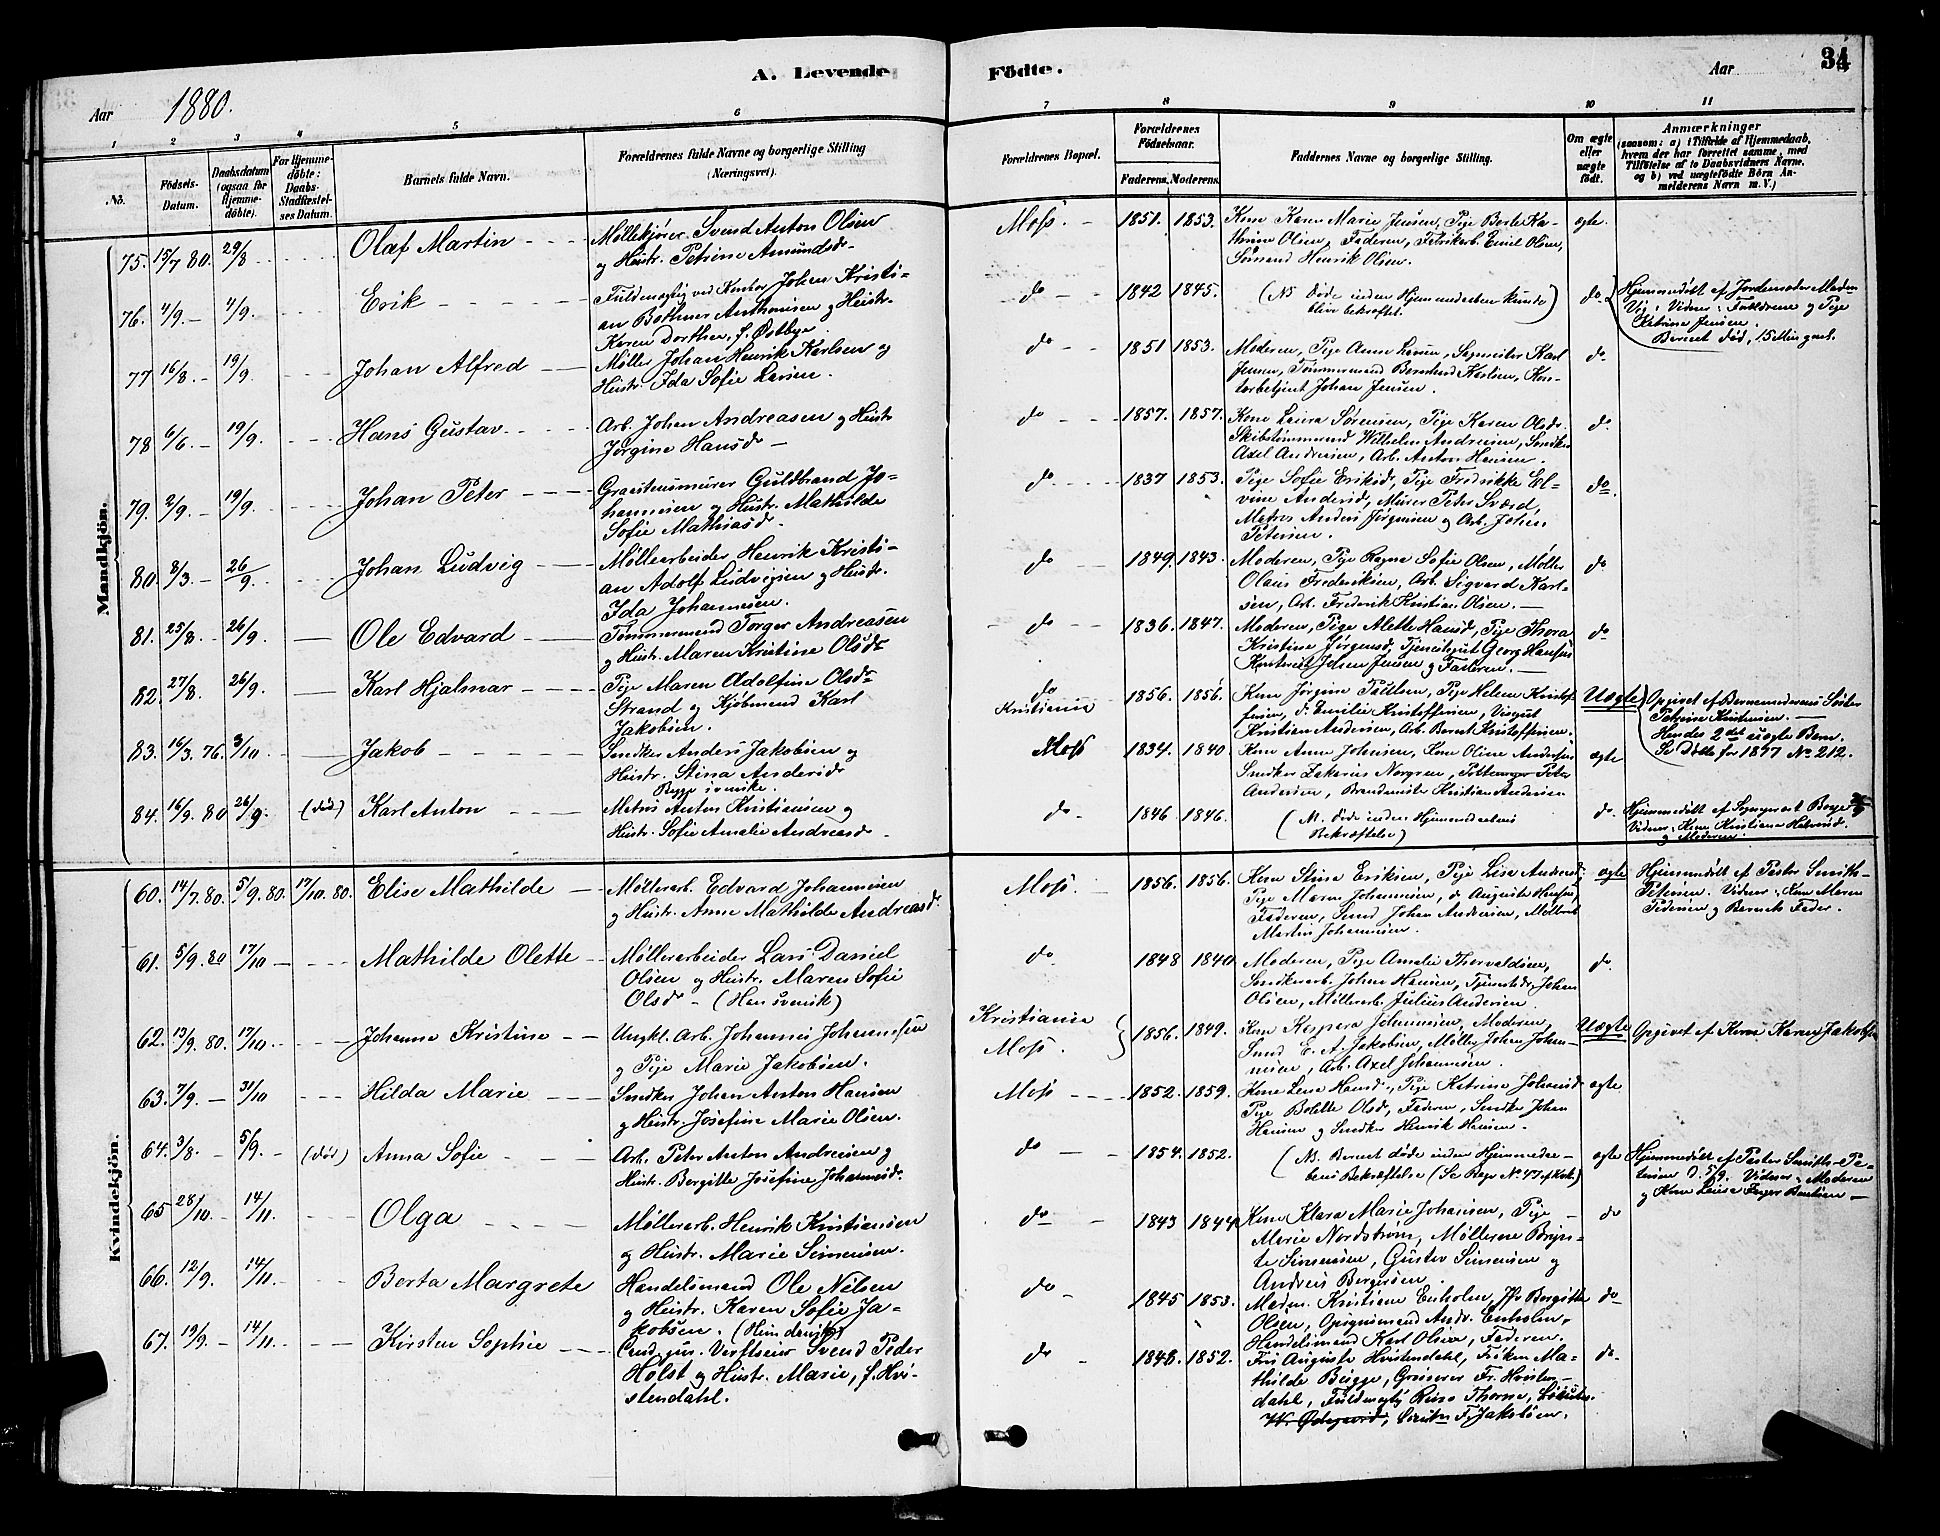 A. Levende Fødte.
34
Aar 1880.
Aar
1 2 3 4 5 6 7 8 9 10 11
No. Fødsels-Datum. Daabsdatum (ogsaa for Hjemmedøbte). For Hjemmedøbte: Daabs-Stadfæstelses Datum. Barnets fulde Navn. Forældrenes fulde Navne og borgerlige Stilling (Næringsvei). Forældrenes Bopæl. Forældrenes Fødselsaar. Faderens. Moderens. Faddernes Navne og borgerlige Stilling. Om ægte eller uægte født. Anmærkninger (saasom: a) i Tilfælde af Hjemmedaab, hvem der har forrettet samme, med Tilføielse af to Daabsvidners Navne, og b) ved uægtefødte Børn Anmelderens Navn m. V.)
Mandkjøn.
75. 15/7 80. 29/8 Olaf Martin Møllekjører Svend Anton Olsen
og Hustr. Petrine Amundsdr.
Moss. 1851. 1853. Kone Karen Marie Jensen, Pige Berte Ka-
thrine Olsen, Faderen, Fabrikarb. Emil Olsen,
Sømand Henrik Olsen.
ægte.
76. 4/9. 4/9. Erik Fuldmægtig ved Kontor Johan Kristi-
an Bothner Anthonisen og Hustr.
Karen Dorthea, f. Østbye.
do 1842 1845. (NB døde inden Hjemmedaaben kunde
blive bekræftet.)
do. Hjemmedøbt af Jordemoder Madm
Vig. Vidner: Forældrene og Pige
Katrine Jensen.
Barnet død, 15 Min. gml.
77 16/8. 19/9. Johan Alfred Møller Johan Henrik Karlsen og
Hustr. Ida Sofie Larsen.
do 1851 1853. Moderen, Pige Anne Larsen, Sagmester Karl
Jensen, Tømmermand Bernhard Karlsen, Kon-
torbetjent Johan Jensen.
do.
78 6/6. 19/9. Hans Gustav Arb. Johan Andreasen og Hustr.
Jørgine Hansdr.
do 1857. 1857. Kone Laura Sørensen, Pige Karen Olsdr.
Skibstømmermand Wilhelm Andresen, Snedker
Axel Andresen, Arb. Anton Hansen.
do.
79. 2/9. 19/9. Johan Peter Graastensmurer Guldbrand Jo-
hannesen og Hustr. Mathilde
Sofie Mathiasdr.
do 1837 1853. Pige Sofie Eriksdr., Pige Fredrikke El-
vine Andersdr., Murer Peter Sværd,
Matros Anders Jørgensen og Arb. Johan
Petersen.
do.
80. 8/3. 26/9. Johan Ludvig Møllerarbeider Henrik Kristi-
an Adolf Ludvigsen og Hustr.
Ida Johannesen.
do 1849. 1843. Moderen, Pige Ragna Sofie Olsen, Møller
Olaus Frederiksen, Arb. Sigvard Karl-
sen, Arb. Frederik Kristian Olsen.
do.
81. 25/8. 26/9. Ole Edvard Tømmermand Torger Andreasen
og Hustr. Maren Kristine Olsdr.
do 1836. 1847. Moderen, Pige Alette Hansdr., Pige Thora
Kristine Jørgensdr., Tjenestegut Georg Hansen
Johan Jensen og Faderen.
do
82. 27/8. 26/9. Karl Hjalmar Pige Maren Adolfine Olsdr.
Strand og Kjøbmand Karl
Jakobsen.
do
Kristiania 1856. 1856. Kone Jørgine Paulsen, Pige Helene Kristof-
fersen, d. Emilie Kristoffersen, Visegut
Kristian Andersen, Arb. Bernt Kristoffersen.
Uægte Opgivet af Barnemoderens Søster
Petrine Kristensen.
Hendes 2det uægte Barn.
Se Døbte for 1877 No 212.
83. 16/3. 76. 3/10 Jakob Snedker Anders Jakobsen og
Hustr. Stina Andersdr.
Begge svenske.
Moss 1834. 1840. Kone Anna Johnsen, Kone Oline Andersen
Snedker Zakarius Norgren, Peter
Andersen, Kristian Andersen
ægte
84. 16/9. 80 26/9. (død) Karl Anton Matros Anton Kristiansen og
Hustr. Sofie Amalie Andreasdr.
do. 1846 1846. (NB. døde inden Hjemmedaabens
Bekræftelse)
do. Hjemmedøbt af
Vidner: Kone Kristiane Halvorsdr.
og Moderen.
Kvindekjøn.
60. 14/7. 80. 5/9. 80. 17/10. 80. Elise Mathilde Møllerarb. Edvard Johannesen
og Hustr. Anne Mathilde Andreasdr.
Moss. 1856. 1856. Kone Stina Eriksen, Pige Lise Andersdr.
Pige Maren Johannesen, do Auguste Hansen,
Faderen, Smed Johan Andersen, Møllerarb.
Martin Johannesen.
ægte Hjemmedøbt af Pastor Smith-
Petersen. Vidner: Kone Maren
Pedersen og Barnets Fader.
61. 5/9. 80 17/10 Mathilde Olette Møllerarbeider Lars Daniel
Olsen og Hustr. Maren Sofie
Olsdr. (Han svensk)
do 1848 1840 Moderen, Pige Amalie Thorvaldsen,
Snedkerarb. Johan Hansen, Johan
Olsen, Møllerarb. Julius Andersen
do.
62. 13/9. 80. 17/10. Johanne Kristine Ungkl. Arb. Johannes Johannesen
og Pige Marie Jakobsen.
Kristiania
Moss. 1856. 1849. Kone Kaspara Johannesen, Moderen,
Smed E. A. Jakobsen, Møller Johan Johan-
nesen, Arb. Axel Johannesen.
Uægte Opgivet af Kone Karen Jakobsen
63. 7/9. 31/10 Hilda Marie Snedker Johan Anton Hansen
og Hustr. Josefine Marie Olsen.
Moss 1852. 1859. Kone Lene Hansdr., Pige Katrine Johansdr.
Pige Bolette Olsdr., Faderen, Snedker Johan
Hansen og Snedker Henrik Hansen.
ægte
64. 3/8. 5/9. (død) Anna Sofie Arb. Peter Anton Andresen og
Hustr. Bergitte Josefine Johannesdr.
do 1854. 1852. (NB. Barnet døde inden Hjemmedaa-
bens Bekræftelse (Se Begr. No 47 af Kvk.)
ægte Hjemmedøbt af Pastor Smith-Pe-
tersen d. 5/9. Vidner: Moderen
og Kone Bentsen
65 28/10. 14/11. Olga Møllerarb. Henrik Kristiansen
og Hustr. Marie Simensen.
do 1843 1844 Kone Klara Marie Johansen, Pige
Marie Nordstrøm, Møllerne Bryn-
te Simensen, Gustav Simensen og
Andreas Bergersen.
do
66. 12/9. 14/11. Berta Margrete Handelsmand Ole Nilsen
og Hustr. Karen Sofie Ja-
kobsen. (Hun dansk)
do 1845 1853. Madm. Kristiane Enholm, Jfr. Bergitte
Olsen, Opsynsmand Andr. Enholm,
Handelsmand Karl Olsen, Faderen.
do
67. 19/9. 14/11. Kirsten Sophie Cand. jur. Værftseier Svend Peder
Holst og Hustr. Marie, f. Hvi-
stendahl.
do 1848. 1852. Fru Augusta Hvistendahl, Frøken Ma-
thilde Bugge, Grosserer Fr. Hvisten-
dahl, Fuldmægtig Thorne,
W. Ødegaard, F. Jakobsen.
do.